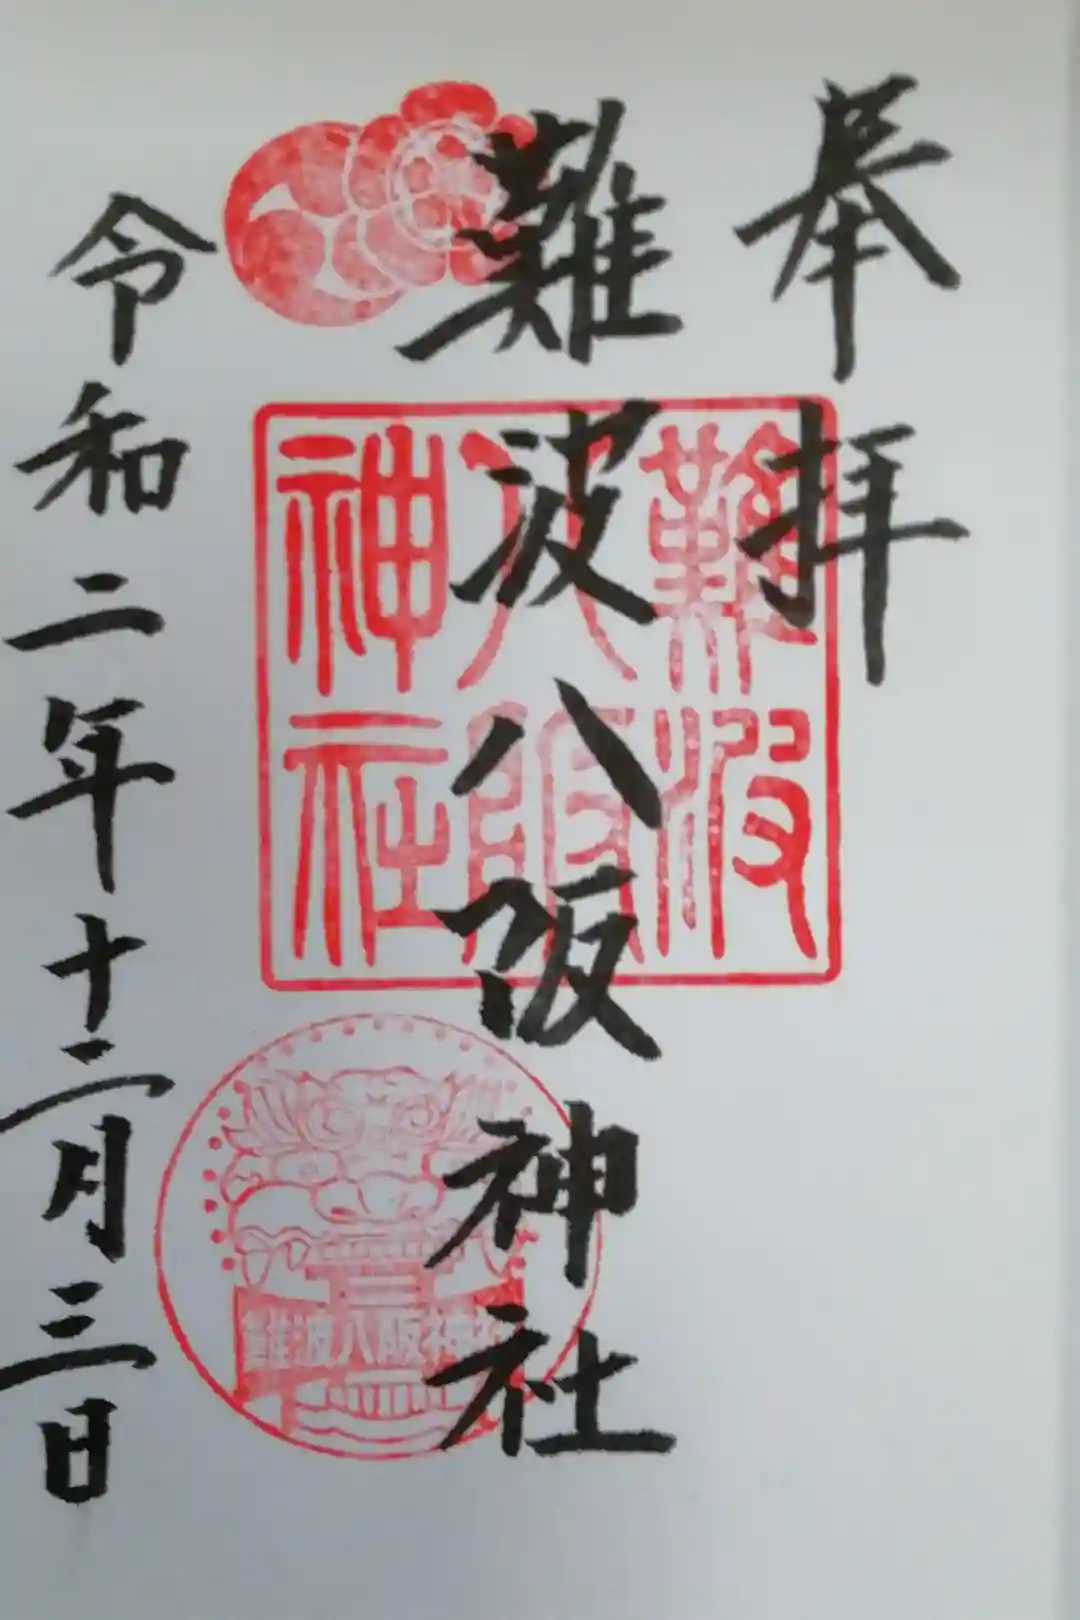 奉拝
難波八阪神社
令和二年十二月三日
難波
八阪
神社
難波八阪神社